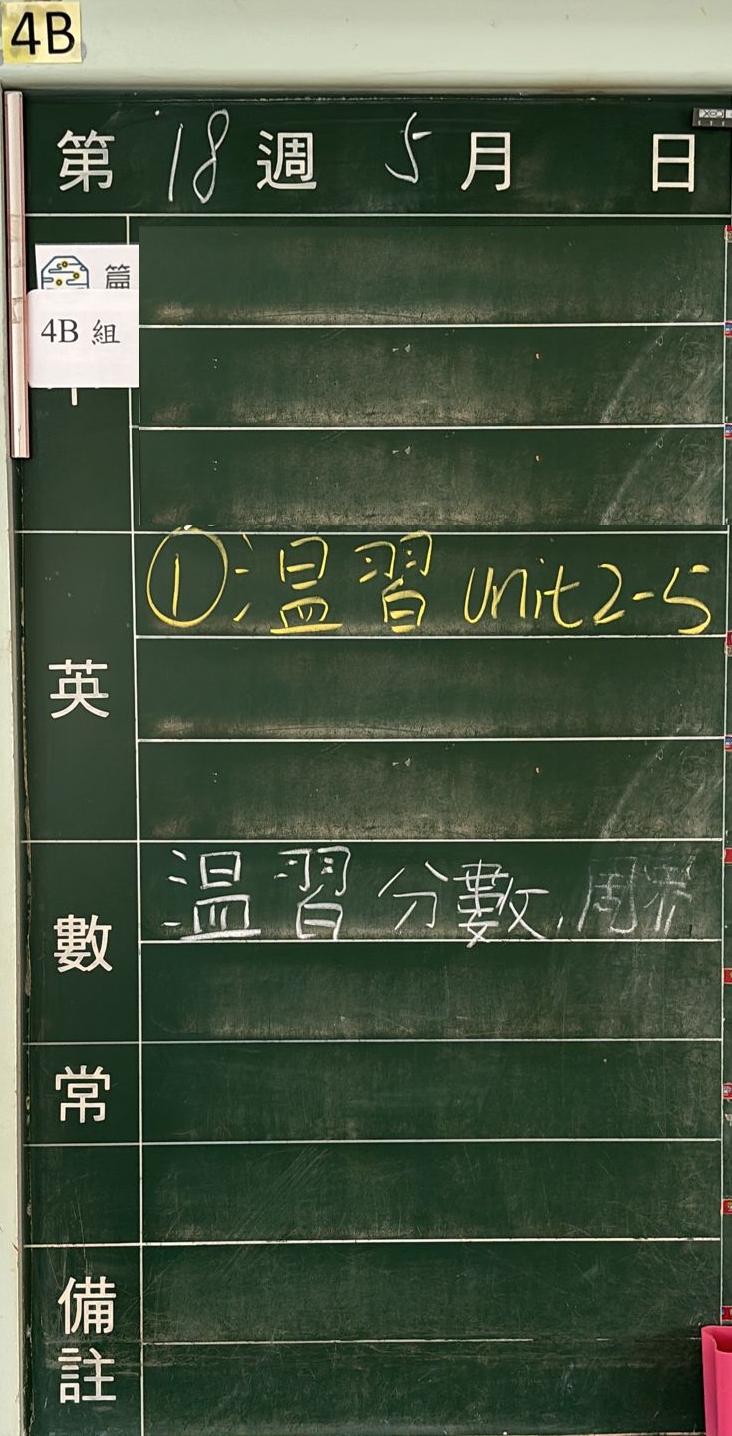 4B
第 18 週 5 月 日
篇
4B 組
英 ①溫習 Unit 2-5
數 溫習 分數, 周界
常
備註